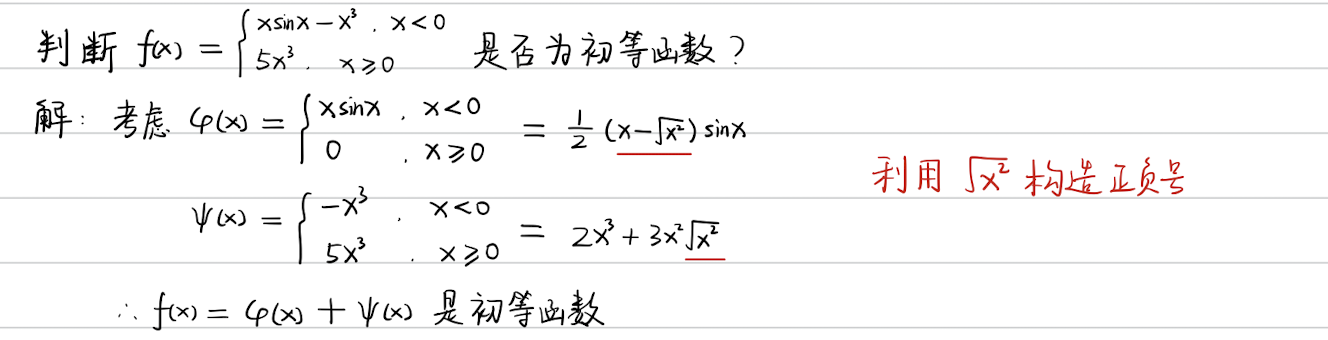 判断 f(x) = { xsinx − x³, x < 0
5x³, x ⩾ 0 是否为初等函数?
解: 考虑 φ(x) = { xsinx, x < 0
0, x ⩾ 0 = 1/2 (x − √x²) sinx
利用 √x² 构造正负号
ψ(x) = { −x³, x < 0
5x³, x ⩾ 0 = 2x³ + 3x²√x²
∴ f(x) = φ(x) + ψ(x) 是初等函数